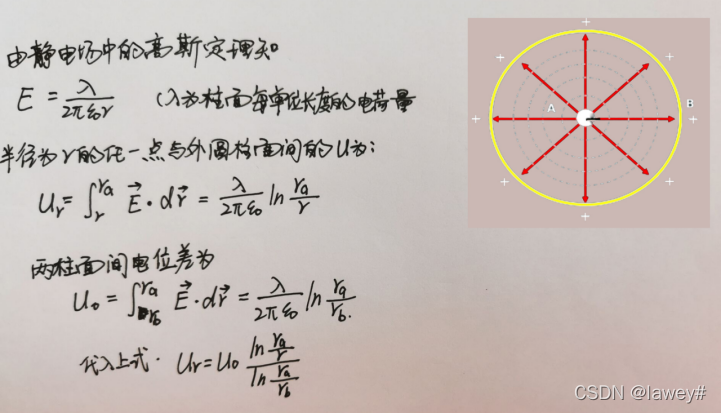 由静电场中的高斯定理知
E = λ/2πε₀r (λ为柱面每单位长度的电荷量
半径为r的任一点与外圆柱面间的U为:
Ur = ∫_r^ra E⃗·dr⃗ = λ/2πε₀ ln ra/r
两柱面间电位差为
U₀ = ∫_rb^ra E⃗·dr⃗ = λ/2πε₀ ln ra/rb.
代入上式. Ur = U₀ (ln ra/r)/(ln ra/rb)
+ + + + + + + +
A B
CSDN @lawey#